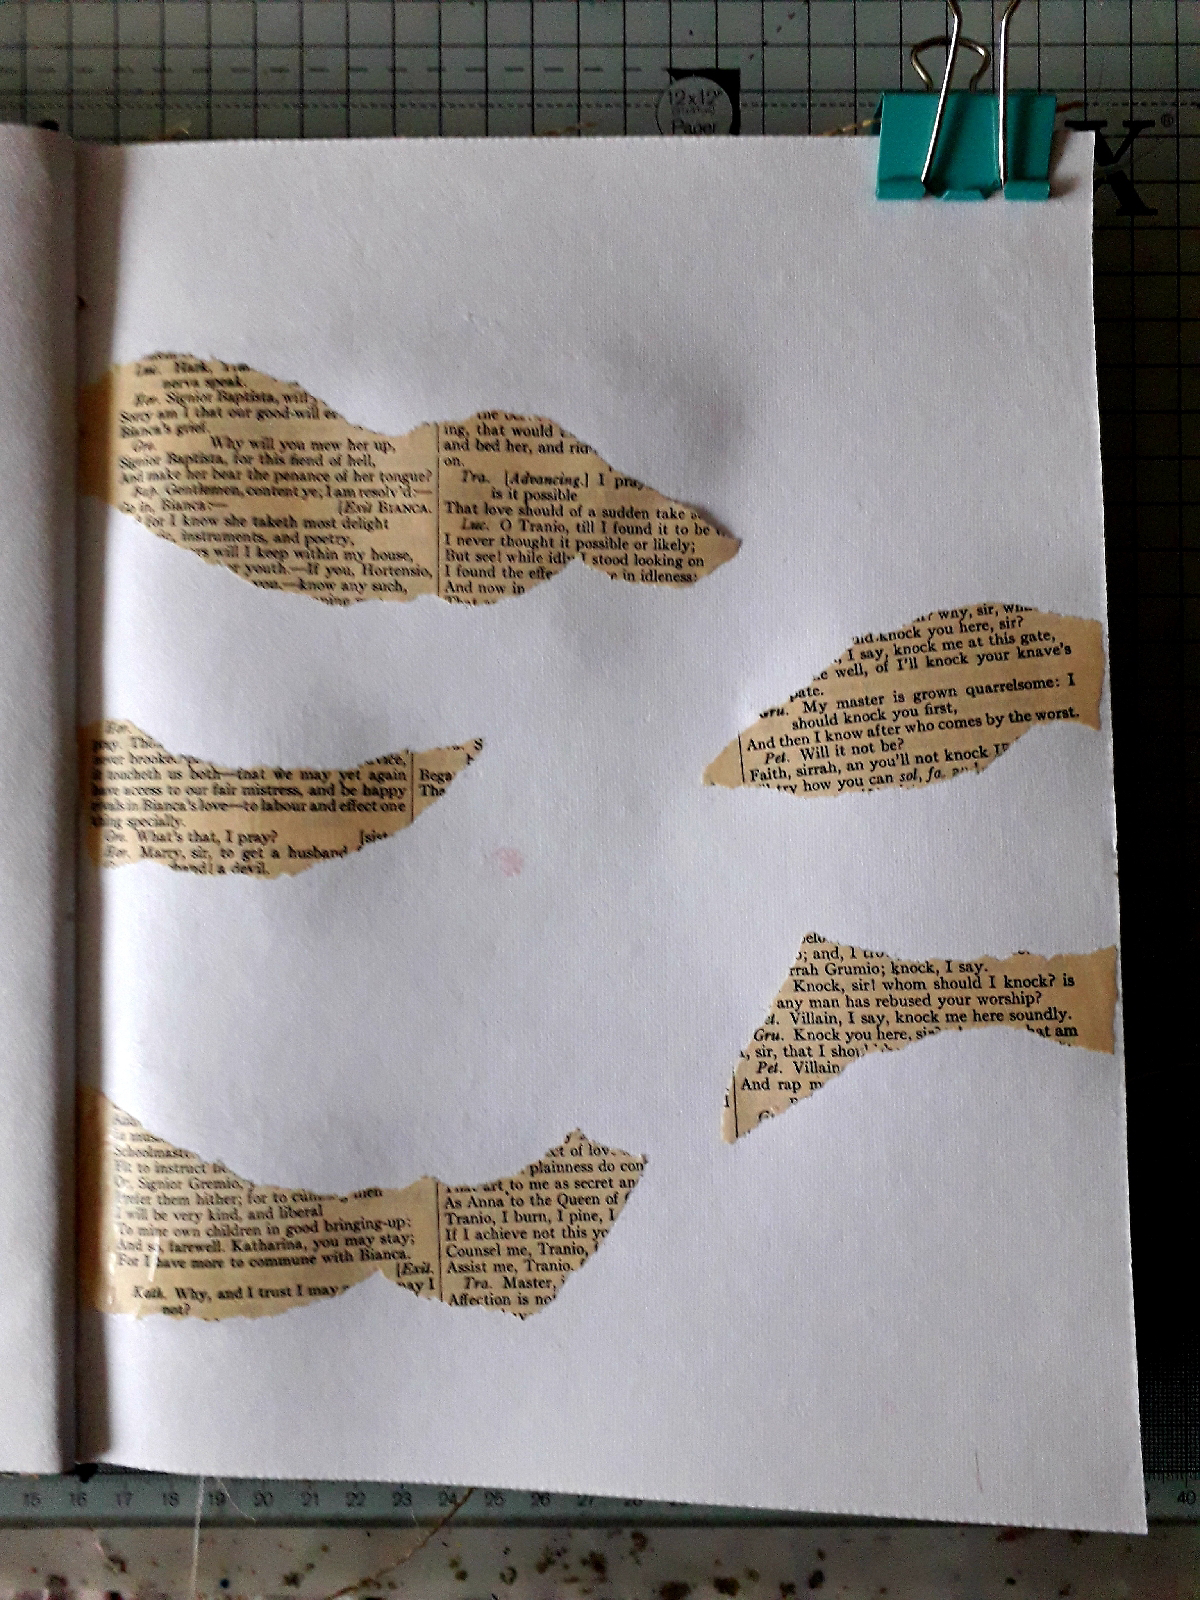 12x12"
Paper
X®
Luc. Hark,
nerva speak.
Hor. Signior Baptista, will
Sorry am I that our good-will
Bianca's grief.
Gre. Why will you mew her up,
Signior Baptista, for this fiend of hell,
And make her bear the penance of her tongue?
Bap. Gentlemen, content ye; I am resolv'd:—
Go in, Bianca:— [Exit BIANCA.
for I know she taketh most delight
instruments, and poetry,
will I keep within my house,
youth.—If you, Hortensio,
you,—know any such,
the
ing, that would
and bed her, and rid
on.
Tra. [Advancing.] I pray
is it possible
That love should of a sudden take
Luc. O Tranio, till I found it to be
I never thought it possible or likely;
But see! while idly I stood looking on
I found the effe in idleness:
And now in
That
why, sir,
knock you here, sir?
I say, knock me at this gate,
well, of I'll knock your knave's
pate.
Gru. My master is grown quarrelsome: I
should knock you first,
And then I know after who comes by the worst.
Pet. Will it not be?
Faith, sirrah, an you'll not knock
try how you can sol, fa,
Hor.
pray.
never brooke
it toucheth us both—that we may yet again
have access to our fair mistress, and be happy
rivals in Bianca's love—to labour and effect one
thing specially.
Gre. What's that, I pray? [sist
Hor. Marry, sir, to get a husband
a devil.
Bega
The
; and, I
rrah Grumio; knock, I say.
Knock, sir! whom should I knock? is
any man has rebused your worship?
et. Villain, I say, knock me here soundly.
Gru. Knock you here, sir? hat am
, sir, that I shou
Pet. Villain
And rap m
Schoolmast
Fit to instruct
Or, Signior Gremio,
Prefer them hither; for to cunning men
I will be very kind, and liberal
To mine own children in good bringing-up:
And so, farewell. Katharina, you may stay;
For I have more to commune with Bianca.
[Exit.
Kath. Why, and I trust I may ay I
not?
of lov
plainness do con
art to me as secret an
As Anna to the Queen of
Tranio, I burn, I pine, I
If I achieve not this yo
Counsel me, Tranio,
Assist me, Tranio.
Tra. Master,
Affection is no
15 16 17 18 19 20 21 22 23 24 25 26 27 28 40